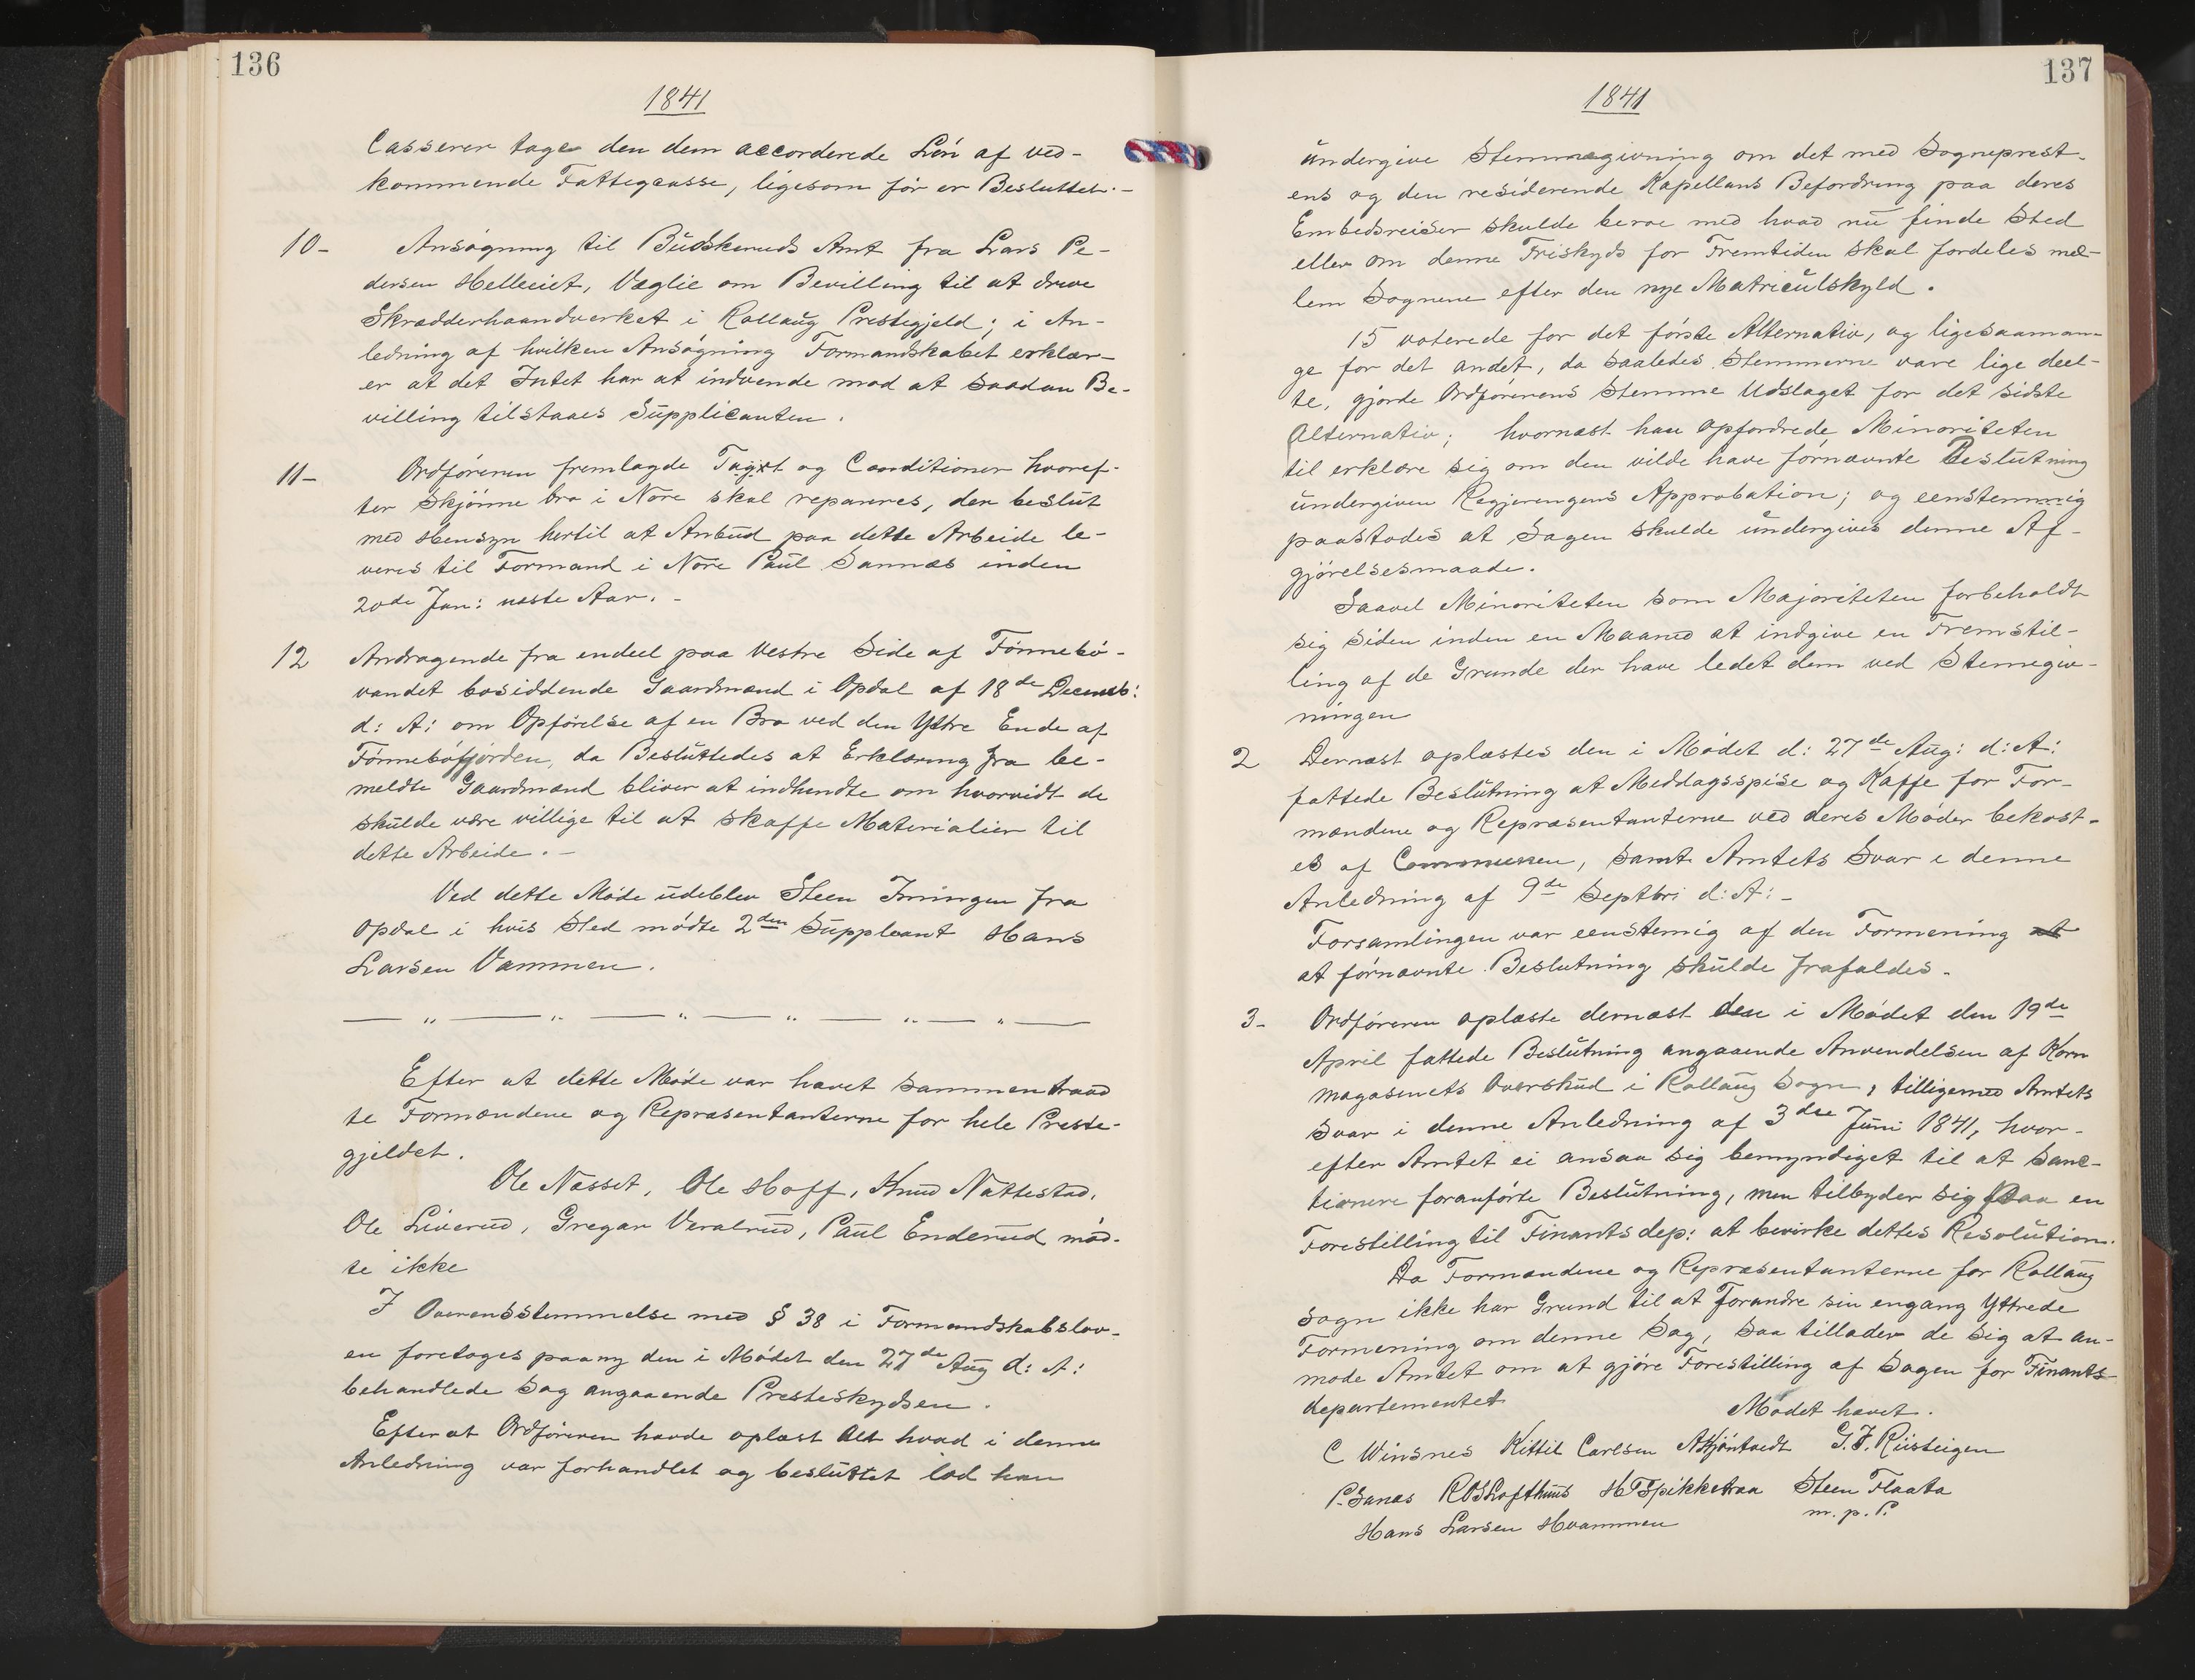 136
1841
Casserer tage den dem accorderede Løn af ved-
kommende Fattigcasse, ligesom før er Besluttet.-
10- Ansøgning til Budskeruds Amt fra Lars Pe-
dersen Helleeiet, Væglie om Bevilling til at drive
Skrædderhaandverket i Rollaug Prestegjeld; i An-
ledning af hvilken Ansøgning Formandskabet erklær-
er at det Intet har at indvende mod at saadan Be-
villing tilstaaes Supplicanten.
11- Ordføreren fremlagde Taxt og Conditioner hvoref-
ter Skjønne bro i Nore skal repareres, der beslut
med Hensyn hertil at Anbud paa dette Arbeide le-
veres til Formand i Nore Paul Sannæs inden
20de Jan: næste Aar. -
12 Andragende fra endeel paa Vestre Side af Tønnebø-
vandet bosiddende Gaardmænd i Opdal af 18de Decemb:
d: A: om Opførelse af en Bro ved den Yttre Ende af
Tønnebøfjorden, da Besluttedes at Erklæring fra be-
meldte Gaardmænd bliver at indhendte om hvorvidt de
skulde være villige til at skaffe Materialier til
dette Arbeide. -
Ved dette Møde udeblev Steen Inningen fra
Opdal i hvis Sted mødte 2den Suppleant Hans
Larsen Vammen.
— „ — „ — „ — „ — „ — „ —
Efter at dette Møde var hævet sammentraad
te Formændene og Repræsentanterne for hele Preste-
gjeldet.
Ole Næsset, Ole Hoff, Knud Nattestad,
Ole Liverud, Gregar Veralrud, Paul Enderud mød-
te ikke
I Overensstemmelse med § 38 i Formandskabslov-
en foretoges paany den i Mødet den 27de Aug d: A:
behandlede Sag angaaende Presteskydsen.
Efter at Ordføreren havde oplæst Alt hvad i denne
Anledning var forhandlet og besluttet lod han
137
1841
undergive Stemmegivning om det med Sogneprest-
ens og den residerende Kapellans Befordring paa deres
Embedsreiser skulde beroe med hvad nu finde Sted
eller om denne Friskyds for Fremtiden skal fordeles mel-
lem Sognene efter den nye Matriculskyld.
15 voterede for det første Alternativ, og ligesaaman-
ge for det andet, da saaledes Stemmerne vare lige deel-
te, gjorde Ordførerens Stemme Udslaget for det sidste
Alternativ; hvornæst han opfordrede Minoriteten
til erklære sig om den vilde have førnævnte Beslutning
undergiven Regjeringens Approbation; og eenstemmig
paastodes at Sagen skulde undergives denne Af-
gjørelsesmaade.
Saavel Minoriteten som Majoriteten forbeholdt
sig siden inden en Maaned at indgive en Fremstil-
ling af de Grunde der have ledet dem ved Stemegiv-
ningen
2 Dernæst oplæstes den i Mødet d: 27de Aug: d: A:
fattede Beslutning at Meddagsspise og Kaffe for For-
mændene og Repræsentanterne ved deres Møder bekost-
es af Communen, samt Amtets Svar i denne
Anledning af 9de Septbri d: A: -
Forsamlingen var eenstemig af den Formening at
at førnævnte Beslutning skulde frafaldes.
3- Ordføreren oplæste dernæst den i Mødet den 19de
April fattede Beslutning angaaende Anvendelsen af Korn
magasinets Overskud i Rollaug Sogn, tilligemed Amtets
Svar i denne Anledning af 3die Juni 1841, hvor-
efter Amtet ei ansaa sig bemyndiget til at Sanc-
tionere foranførte Beslutning, men tilbyder sig paa en
Forestilling til Finantsdep: at bevirke dettes Resolution.
Da Formændene og Repræsentanterne for Rollaug
Sogn ikke har Grund til at forandre sin engang yttrede
Formening om denne Sag, saa tillader de sig at an-
mode Amtet om at gjøre Forestilling af Sagen for Finants-
departementet
Mødet hævet.
C Winsnes Kittil Carlsen AKjøntvedt G.T. Riisteigen
P. Sanæs ROSLofthuus HTSpikketraa Steen Flaata
m. p. P.
Hans Larsen Hvammen